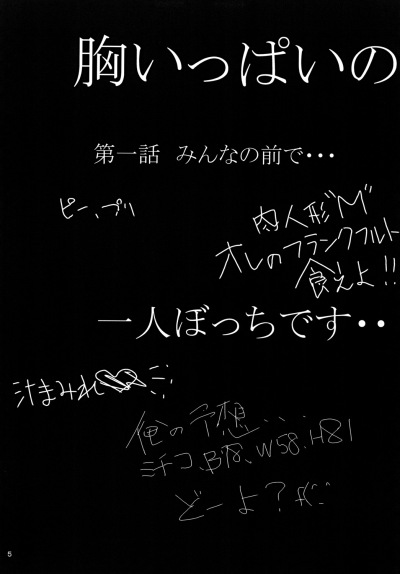 胸いっぱいの
第一話 みんなの前で・・・
ピー、プリ
肉人形"M"
オレのフランクフルト
食えよ!!
一人ぼっちです・・
汁まみれ♡
俺の予想..
ミチコ、B78、W58、H81
どーよ?
5